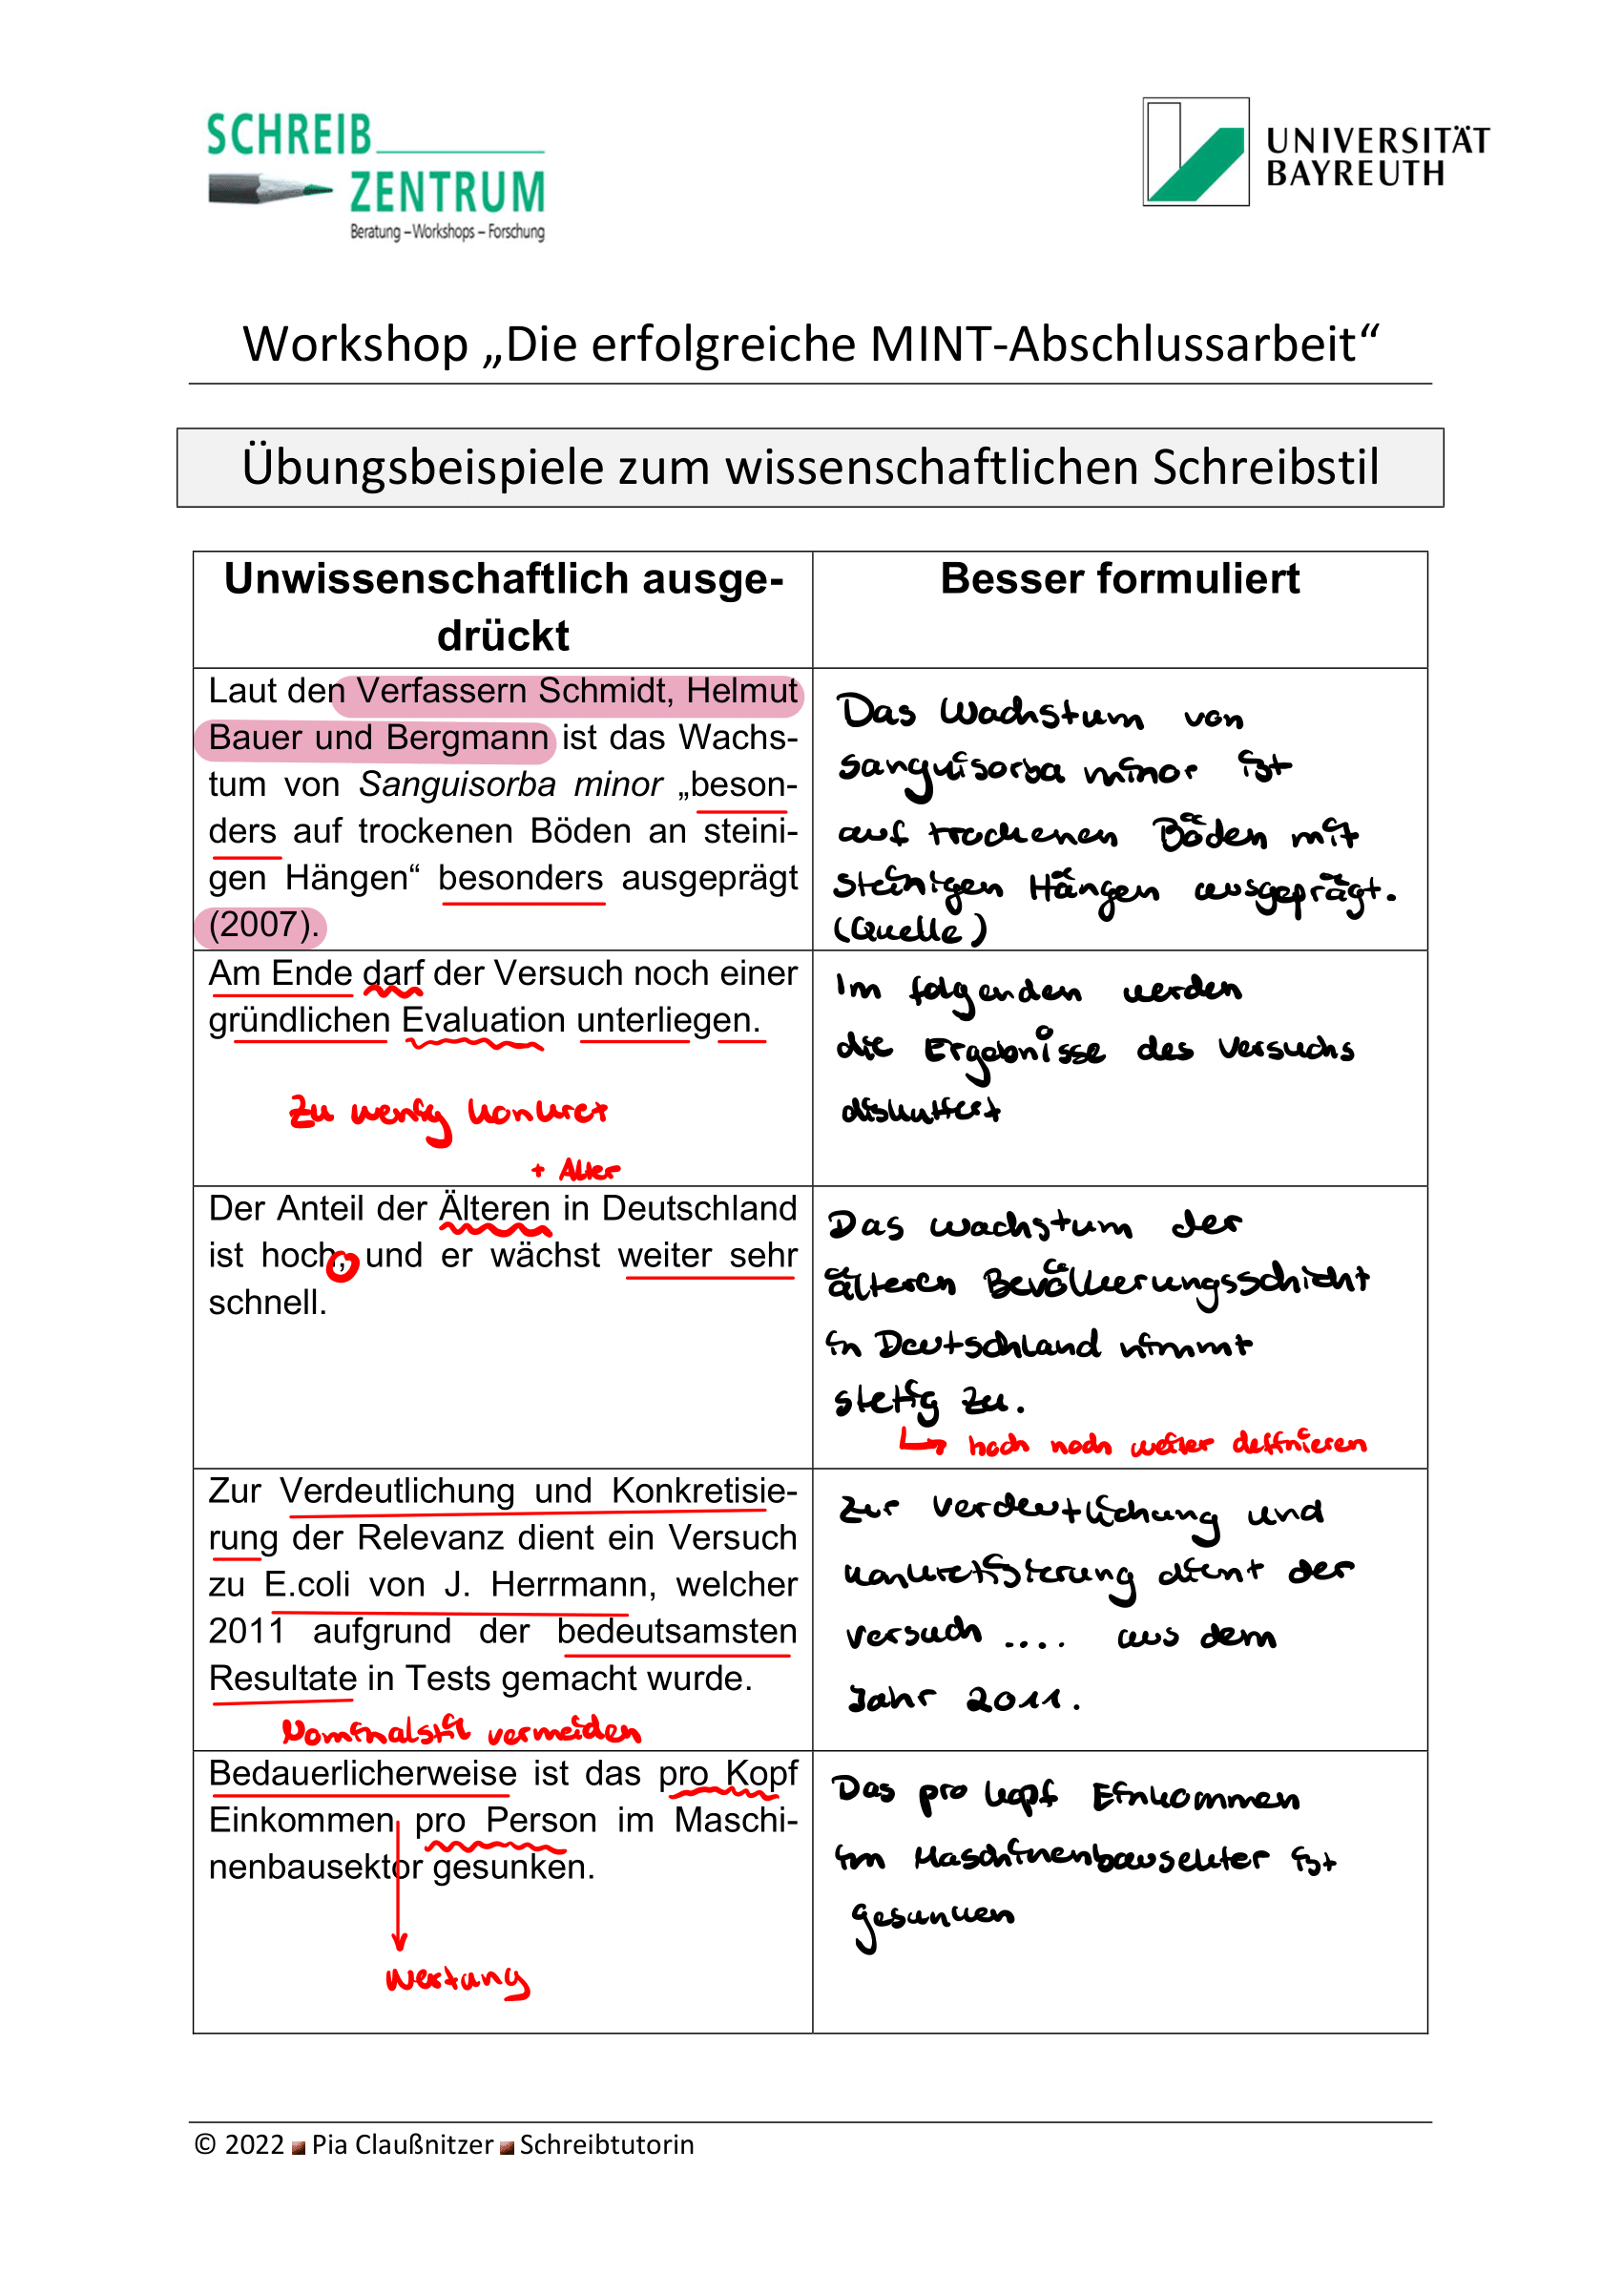 SCHREIB
ZENTRUM
Beratung – Workshops – Forschung
UNIVERSITÄT
BAYREUTH
Workshop „Die erfolgreiche MINT-Abschlussarbeit“
Übungsbeispiele zum wissenschaftlichen Schreibstil
Unwissenschaftlich ausge-
drückt
Besser formuliert
Laut den Verfassern Schmidt, Helmut
Bauer und Bergmann ist das Wachs-
tum von Sanguisorba minor „beson-
ders auf trockenen Böden an steini-
gen Hängen“ besonders ausgeprägt
(2007).
Das Wachstum von
Sanguisorba minor ist
auf trockenen Böden mit
steinigen Hängen ausgeprägt.
(Quelle)
Am Ende darf der Versuch noch einer
gründlichen Evaluation unterliegen.
Zu wenig konkret
+ Alter
Im folgenden werden
die Ergebnisse des Versuchs
diskutiert
Der Anteil der Älteren in Deutschland
ist hoch, und er wächst weiter sehr
schnell.
Das Wachstum der
älteren Bevölkerungsschicht
in Deutschland nimmt
stetig zu.
↳ hoch noch weiter definieren
Zur Verdeutlichung und Konkretisie-
rung der Relevanz dient ein Versuch
zu E.coli von J. Herrmann, welcher
2011 aufgrund der bedeutsamsten
Resultate in Tests gemacht wurde.
Nominalstil vermeiden
Zur Verdeutlichung und
Konkretisierung dient der
Versuch .... aus dem
Jahr 2011.
Bedauerlicherweise ist das pro Kopf
Einkommen pro Person im Maschi-
nenbausektor gesunken.
Wertung
Das pro kopf Einkommen
im Maschinenbausekter ist
gesunken
© 2022 ▪ Pia Claußnitzer ▪ Schreibtutorin